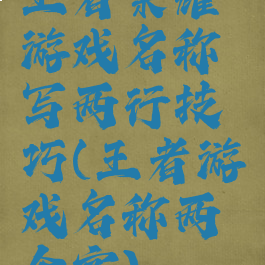 王者荣耀
游戏名称
写两行技
巧(王者游
戏名称两